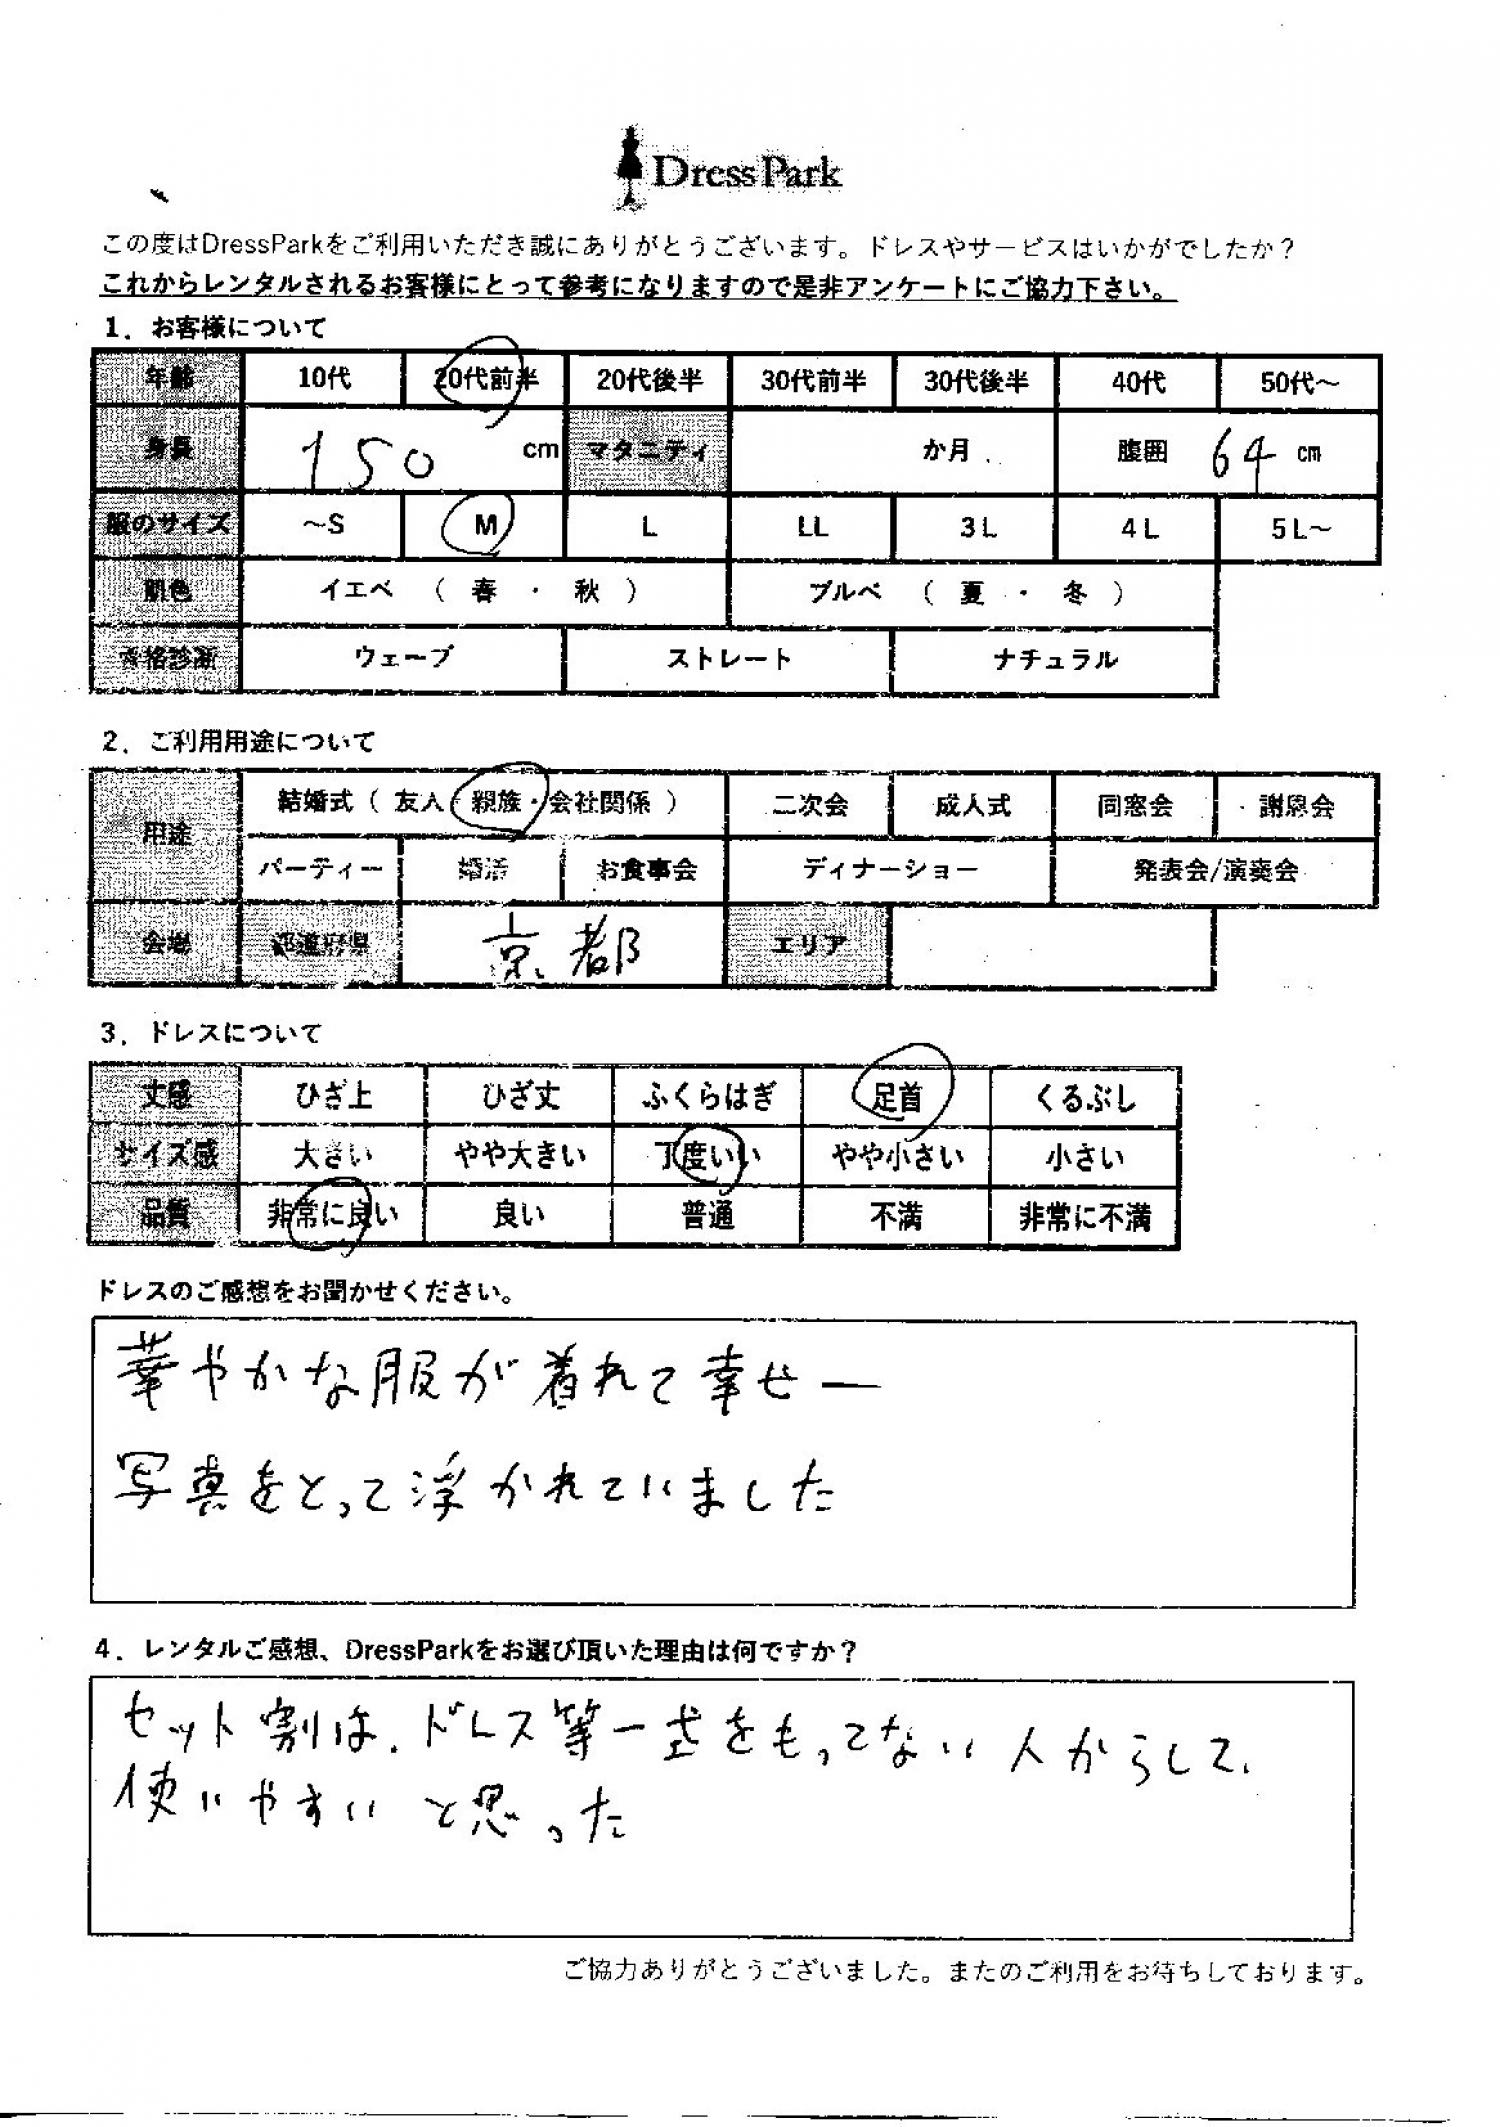 DressPark
この度はDressParkをご利用いただき誠にありがとうございます。ドレスやサービスはいかがでしたか？
これからレンタルされるお客様にとって参考になりますので是非アンケートにご協力下さい。
1．お客様について
年齢 10代 20代前半 20代後半 30代前半 30代後半 40代 50代～
身長 150 cm マタニティ か月 腹囲 64 cm
服のサイズ ～S M L LL 3L 4L 5L～
肌色 イエベ （ 春 ・ 秋 ） ブルベ （ 夏 ・ 冬 ）
骨格診断 ウェーブ ストレート ナチュラル
2．ご利用用途について
用途 結婚式（ 友人・親族・会社関係 ） 二次会 成人式 同窓会 謝恩会
パーティー 婚活 お食事会 ディナーショー 発表会/演奏会
会場 都道府県 京都 エリア
3．ドレスについて
丈感 ひざ上 ひざ丈 ふくらはぎ 足首 くるぶし
サイズ感 大きい やや大きい 丁度いい やや小さい 小さい
品質 非常に良い 良い 普通 不満 非常に不満
ドレスのご感想をお聞かせください。
華やかな服が着れて幸せー
写真をとって浮かれていました
4．レンタルご感想、DressParkをお選び頂いた理由は何ですか？
セット割は、ドレス等一式をもってない人からして、
使いやすいと思った
ご協力ありがとうございました。またのご利用をお待ちしております。